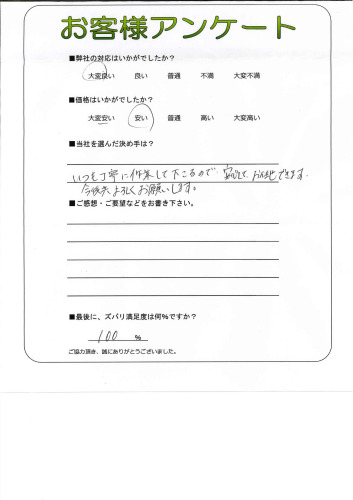 お客様アンケート
■弊社の対応はいかがでしたか？
大変良い 良い 普通 不満 大変不満
■価格はいかがでしたか？
大変安い 安い 普通 高い 大変高い
■当社を選んだ決め手は？
いつも丁寧に作業して下さるので、安心して、お任せできます。
今後共よろしくお願いします。
■ご感想・ご要望などをお書き下さい。
■最後に、ズバリ満足度は何%ですか？
100 %
ご協力頂き、誠にありがとうございました。